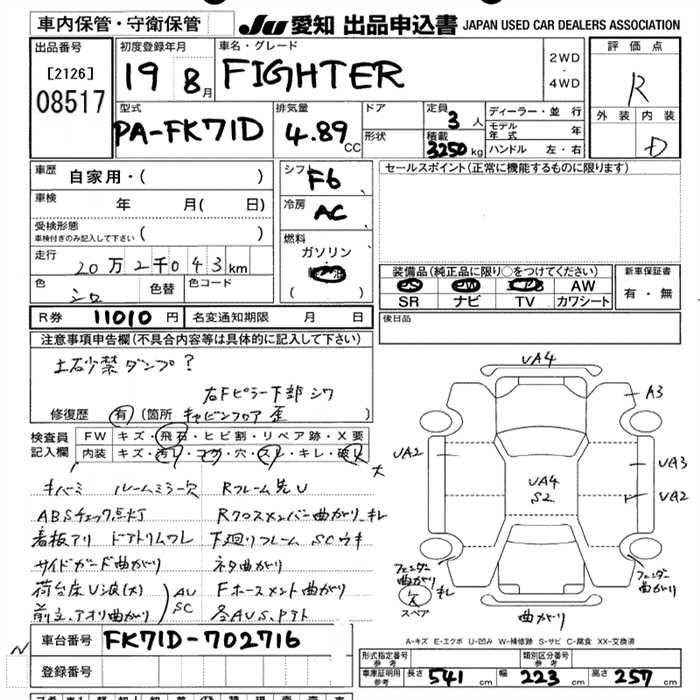 車内保管・守衛保管
JU 愛知 出品申込書 JAPAN USED CAR DEALERS ASSOCIATION
出品番号
[2126]
08517
初度登録年月
19 8月
車名・グレード
FIGHTER
2WD
・
4WD
評価点
R
外装 内装
D
型式
PA-FK71D
排気量
4.89 CC
ドア
形状
定員 3人
積載 3250 kg
ディーラー・並行
モデル年式 年
ハンドル 左・右
車歴 自家用・( )
車検 年 月( 日)
受検形態
車検付きのみ記入して下さい ( )
走行 20万2千043km
色 シロ 色替 色コード
R券 11010円 名変通知期限 月 日
シフト
F6
冷房
AC
燃料
ガソリン
( )
セールスポイント(正常に機能するものに限ります)
装備品(純正品に限り○をつけてください)
PS PW AW
SR ナビ TV カワシート
新車保証書
有・無
後日品
注意事項申告欄(不具合内容等は具体的に記入して下さい)
土砂禁ダンプ?
右Fピラー下部シワ
修復歴 有(箇所 キャビンフロア歪
検査員記入欄
FW キズ・飛石・ヒビ割・リペア跡・X要
内装 キズ・汚レ・コゲ・穴・スレ・キレ・破レ 大
キバミ ルームミラー欠 Rフレーム先U
ABSチェック点灯 Rクロスメンバー曲がり、キレ
看板アリ ドアトリムワレ 下廻りフレームSCウキ
サイドガード曲がり ネタ曲がり
荷台床U波(大) AU Fホースメント曲がり
前立、アオリ曲がり SC 各AUS、
UA4
A3
UA2
UA3
UA4
S2
UA2
フェンダー曲がり
キレ
欠
スペア
フェンダー曲がり
曲がり
A-キズ E-エクボ U-凹み W-補修跡 S-サビ C-腐食 XX-交換済
車台番号 FK71D-702716
登録番号
形式指定番号 参考
類別区分番号 参考
車庫証明用参考 長さ 541 cm 幅 223 cm 高さ 257 cm